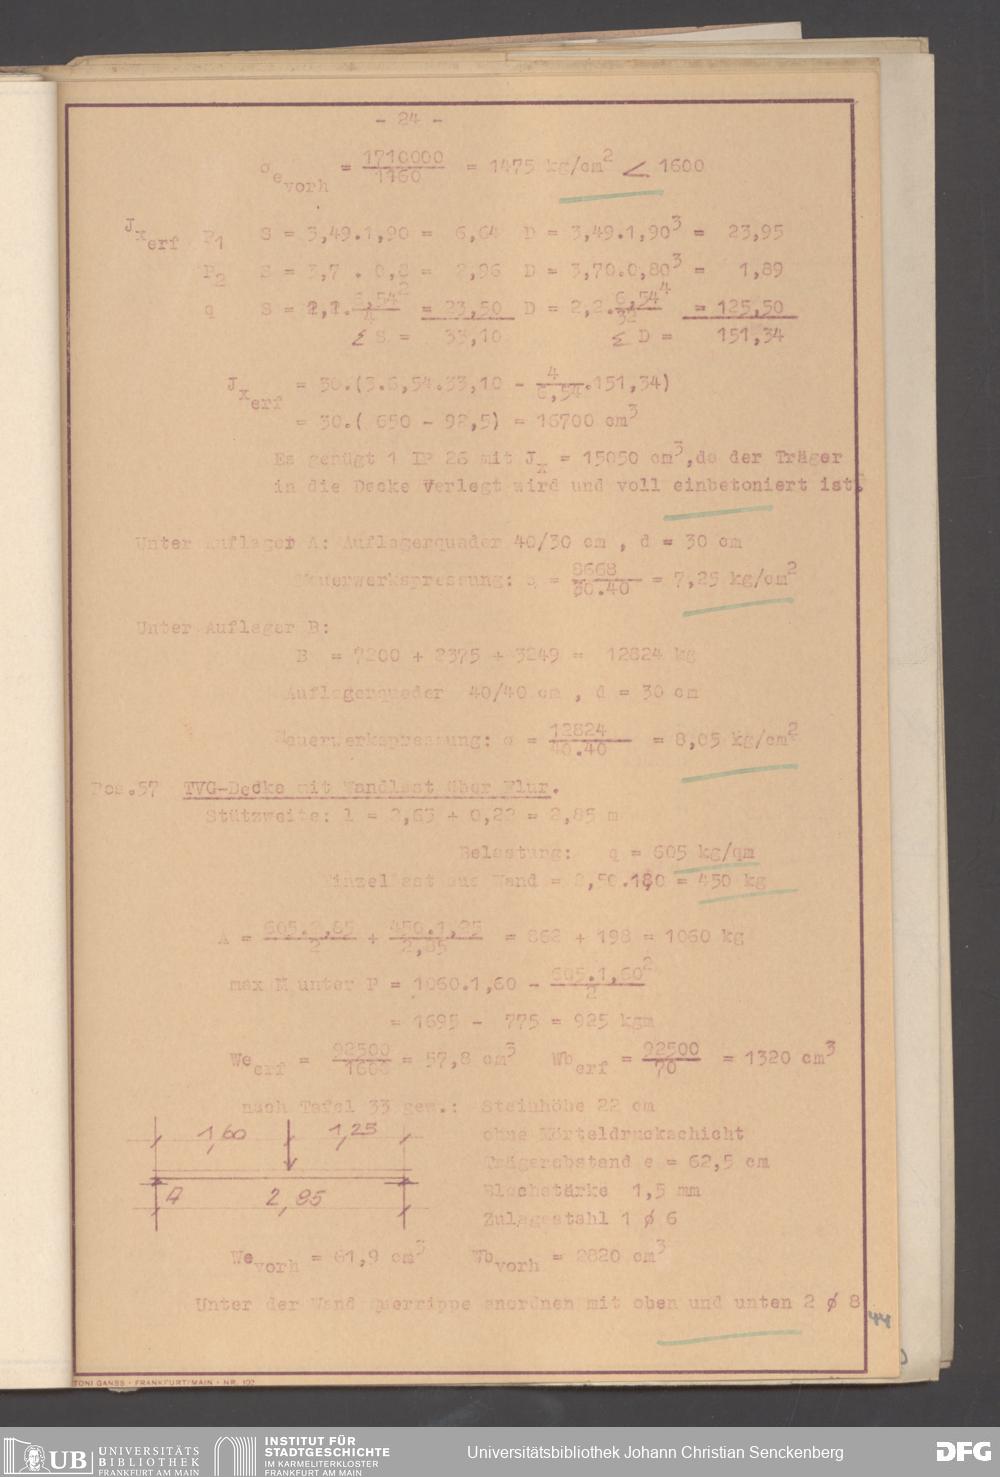 - 24 -
σe vorh = 1710000 / 1160 = 1475 kg/cm² < 1600
Jx erf P1 S = 3,49.1,90 = 6,64 D = 3,49.1,90³ = 23,95
P2 S = 3,7 . 0,8 = 2,96 D = 3,70.0,80³ = 1,89
q S = 2,2.6,54² / 4 = 23,50 D = 2,2.6,54⁴ / 32 = 125,50
Σ S = 33,10 Σ D = 151,34
Jx erf = 30.(3.6,54.33,10 - 4 / 6,54 .151,34)
= 30.( 650 - 92,5) = 16700 cm³
Es genügt 1 IP 26 mit Jx = 15050 cm³,da der Träger
in die Decke verlegt wird und voll einbetoniert ist.
Unter Auflager A: Auflagerquader 40/30 cm , d = 30 cm
Mauerwerkspressung: σ = 8668 / 30.40 = 7,25 kg/cm²
Unter Auflager B:
B = 7200 + 2375 + 3249 = 12824 kg
Auflagerquader 40/40 cm , d = 30 cm
Mauerwerkspressung: σ = 12824 / 40.40 = 8,05 kg/cm²
Pos.57 TVG-Decke mit Wandlast über Flur.
Stützweite: l = 2,63 + 0,22 = 2,85 m
Belastung: q = 605 kg/qm
Einzellast aus Wand = 2,50.180 = 450 kg
A = 605.2,85 / 2 + 450.1,25 / 2,85 = 862 + 198 = 1060 kg
max M unter P = 1060.1,60 - 605.1,60² / 2
= 1695 - 775 = 925 kgm
We erf = 92500 / 1600 = 57,8 cm³ Wb erf = 92500 / 70 = 1320 cm³
nach Tafel 33 gew.: Steinhöhe 22 cm
1,60 1,25 ohne Mörteldruckschicht
Trägerabstand e = 62,5 cm
A 2,85 Blechstärke 1,5 mm
Zulagestahl 1 ø 6
We vorh = 61,9 cm³ Wb vorh = 2820 cm³
Unter der Wand Querrippe anordnen mit oben und unten 2 ø 8
44
TONI GANSS · FRANKFURT/MAIN · NR. 107
UB UNIVERSITÄTS BIBLIOTHEK FRANKFURT AM MAIN
INSTITUT FÜR STADTGESCHICHTE IM KARMELITERKLOSTER FRANKFURT AM MAIN
Universitätsbibliothek Johann Christian Senckenberg
DFG